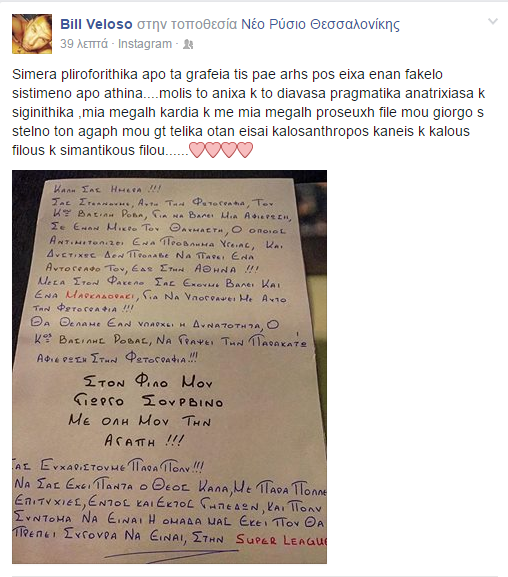 Bill Veloso στην τοποθεσία Νέο Ρύσιο Θεσσαλονίκης
39 λεπτά · Instagram ·
Simera pliroforithika apo ta grafeia tis pae arhs pos eixa enan fakelo
sistimeno apo athina....molis to anixa k to diavasa pragmatika anatrixiasa k
siginithika ,mia megalh kardia k me mia megalh proseuxh file mou giorgo s
stelno ton agaph mou gt telika otan eisai kalosanthropos kaneis k kalous
filous k simantikous filou......
ΚΑΛΗ ΣΑΣ ΗΜΕΡΑ !!!
ΣΑΣ ΣΤΕΛΝΟΥΜΕ, ΑΥΤΗ ΤΗΝ ΦΩΤΟΓΡΑΦΙΑ, ΤΟΥ
ΚΟΥ ΒΑΣΙΛΗ ΡΟΒΑ, ΓΙΑ ΝΑ ΒΑΛΕΙ ΜΙΑ ΑΦΙΕΡΩΣΗ,
ΣΕ ΕΝΑΝ ΜΙΚΡΟ ΤΟΥ ΘΑΥΜΑΣΤΗ, Ο ΟΠΟΙΟΣ
ΑΝΤΙΜΕΤΩΠΙΖΕΙ ΕΝΑ ΠΡΟΒΛΗΜΑ ΥΓΕΙΑΣ, ΚΑΙ
ΔΥΣΤΙΧΩΣ ΔΕΝ ΠΡΟΛΑΒΕ ΝΑ ΠΑΡΕΙ ΕΝΑ
ΑΥΤΟΓΡΑΦΟ ΤΟΥ, ΕΔΩ ΣΤΗΝ ΑΘΗΝΑ !!!
ΜΕΣΑ ΣΤΟΝ ΦΑΚΕΛΟ ΣΑΣ ΕΧΟΥΜΕ ΒΑΛΕΙ ΚΑΙ
ΕΝΑ ΜΑΡΚΑΔΟΡΑΚΙ, ΓΙΑ ΝΑ ΥΠΟΓΡΑΨΕΙ ΜΕ ΑΥΤΟ
ΤΗΝ ΦΩΤΟΓΡΑΦΙΑ !!!
ΘΑ ΘΕΛΑΜΕ ΕΑΝ ΥΠΑΡΧΕΙ Η ΔΥΝΑΤΟΤΗΤΑ, Ο
ΚΟΣ ΒΑΣΙΛΗΣ ΡΟΒΑΣ, ΝΑ ΓΡΑΨΕΙ ΤΗΝ ΠΑΡΑΚΑΤΩ
ΑΦΙΕΡΩΣΗ ΣΤΗΝ ΦΩΤΟΓΡΑΦΙΑ !!!
ΣΤΟΝ ΦΙΛΟ ΜΟΥ
ΓΙΩΡΓΟ ΣΟΥΡΒΙΝΟ
ΜΕ ΟΛΗ ΜΟΥ ΤΗΝ
ΑΓΑΠΗ !!!
ΣΑΣ ΕΥΧΑΡΙΣΤΟΥΜΕ ΠΑΡΑ ΠΟΛΥ !!!
ΝΑ ΣΑΣ ΕΧΕΙ ΠΑΝΤΑ Ο ΘΕΟΣ ΚΑΛΑ, ΜΕ ΠΑΡΑ ΠΟΛΛΕ
ΕΠΙΤΥΧΙΕΣ, ΕΝΤΟΣ ΚΑΙ ΕΚΤΟΣ ΓΗΠΕΔΩΝ, ΚΑΙ ΠΟΛΥ
ΣΥΝΤΟΜΑ ΝΑ ΕΙΝΑΙ Η ΟΜΑΔΑ ΜΑΣ ΕΚΕΙ ΠΟΥ ΘΑ
ΠΡΕΠΕΙ ΣΥΓΟΥΡΑ ΝΑ ΕΙΝΑΙ, ΣΤΗΝ SUPER LEAGUE